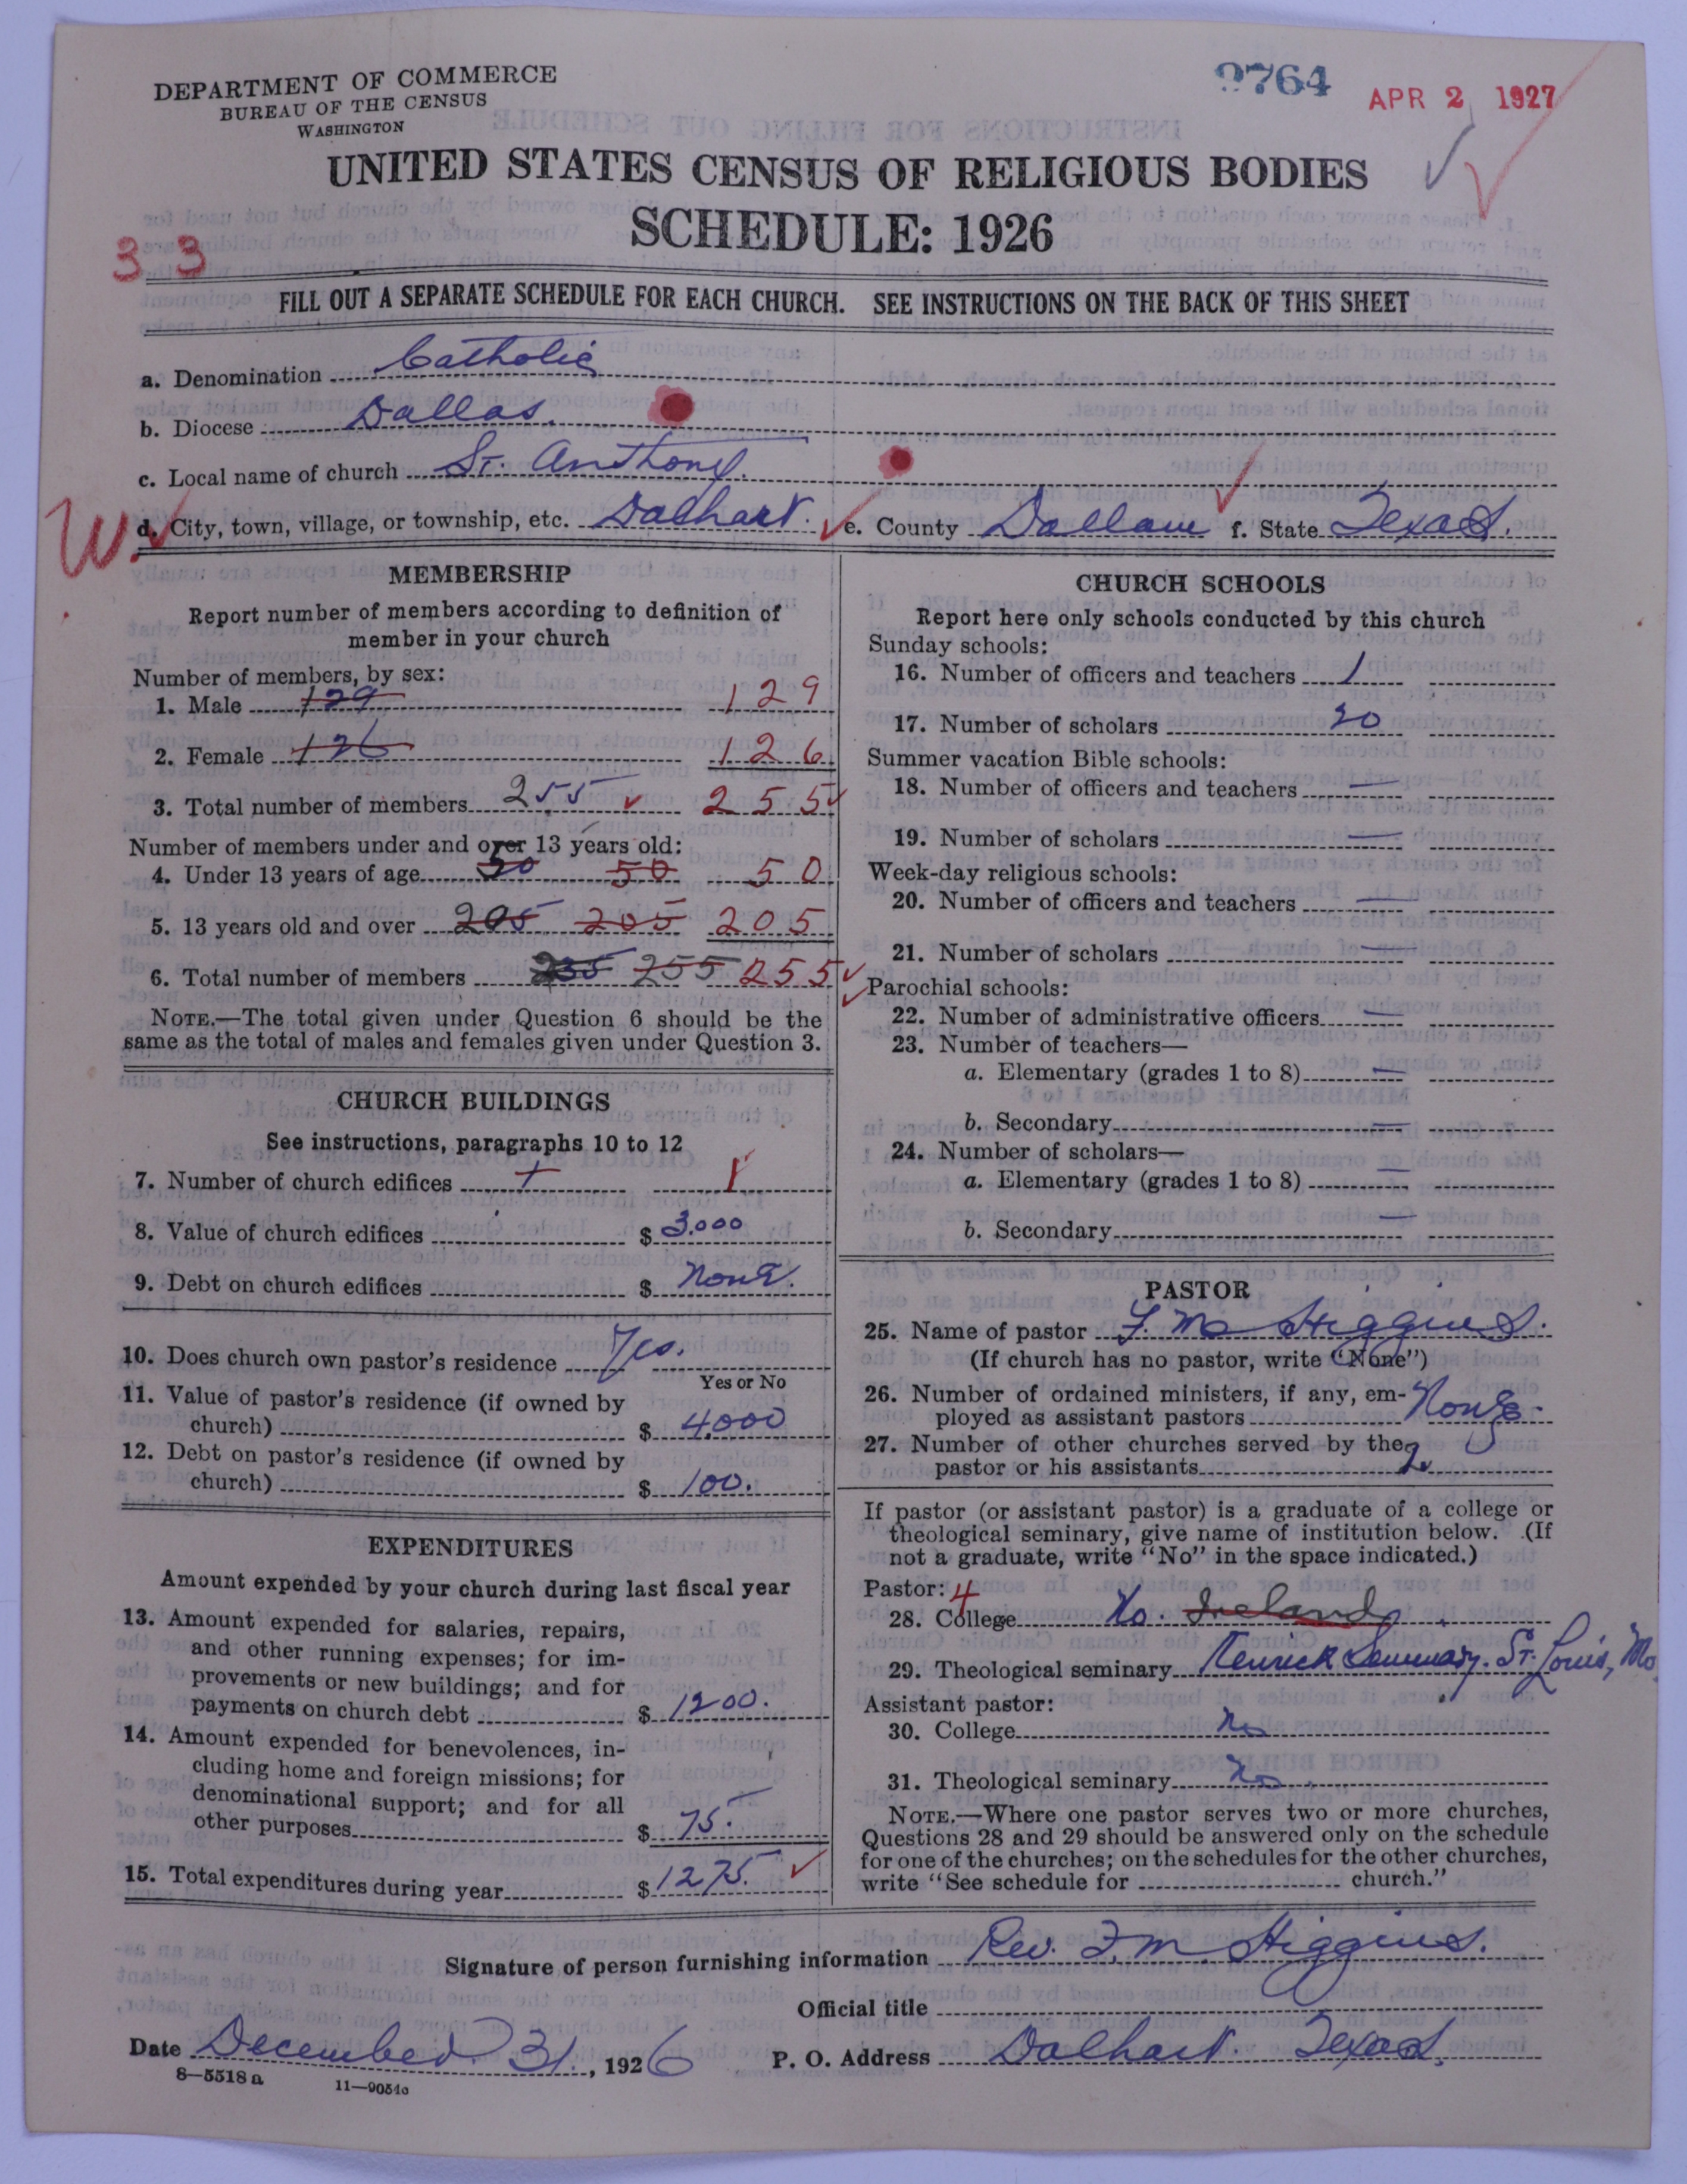 DEPARTMENT OF COMMERCE
BUREAU OF THE CENSUS
WASHINGTON
9764
APR 2 1927
UNITED STATES CENSUS OF RELIGIOUS BODIES
SCHEDULE: 1926
3 3
FILL OUT A SEPARATE SCHEDULE FOR EACH CHURCH. SEE INSTRUCTIONS ON THE BACK OF THIS SHEET
a. Denomination Catholic
b. Diocese Dallas.
c. Local name of church St. Anthony.
W.
d. City, town, village, or township, etc. Dalhart. e. County Dallam f. State Texas.
MEMBERSHIP
Report number of members according to definition of
member in your church
Number of members, by sex:
1. Male 129 129
2. Female 126 126
3. Total number of members 255 255
Number of members under and over 13 years old:
4. Under 13 years of age 50 50 50
5. 13 years old and over 205 205 205
6. Total number of members 255 255 255
NOTE.—The total given under Question 6 should be the
same as the total of males and females given under Question 3.
CHURCH BUILDINGS
See instructions, paragraphs 10 to 12
7. Number of church edifices 1 1
8. Value of church edifices $ 3000
9. Debt on church edifices $ None.
10. Does church own pastor's residence Yes.
Yes or No
11. Value of pastor's residence (if owned by
church) $ 4,000
12. Debt on pastor's residence (if owned by
church) $ 100.
EXPENDITURES
Amount expended by your church during last fiscal year
13. Amount expended for salaries, repairs,
and other running expenses; for im-
provements or new buildings; and for
payments on church debt $ 1200.
14. Amount expended for benevolences, in-
cluding home and foreign missions; for
denominational support; and for all
other purposes $ 75.
15. Total expenditures during year $ 1275.
CHURCH SCHOOLS
Report here only schools conducted by this church
Sunday schools:
16. Number of officers and teachers 1
17. Number of scholars 20
Summer vacation Bible schools:
18. Number of officers and teachers —
19. Number of scholars —
Week-day religious schools:
20. Number of officers and teachers —
21. Number of scholars —
Parochial schools:
22. Number of administrative officers —
23. Number of teachers—
a. Elementary (grades 1 to 8) —
b. Secondary —
24. Number of scholars—
a. Elementary (grades 1 to 8) —
b. Secondary —
PASTOR
25. Name of pastor F. M. Higgins.
(If church has no pastor, write "None")
26. Number of ordained ministers, if any, em-
ployed as assistant pastors None.
27. Number of other churches served by the
pastor or his assistants 2
If pastor (or assistant pastor) is a graduate of a college or
theological seminary, give name of institution below. (If
not a graduate, write "No" in the space indicated.)
Pastor: 4
28. College No. Ireland
29. Theological seminary Kenrick Seminary. St. Louis, Mo
Assistant pastor:
30. College No
31. Theological seminary No.
NOTE.—Where one pastor serves two or more churches,
Questions 28 and 29 should be answered only on the schedule
for one of the churches; on the schedules for the other churches,
write "See schedule for church."
Signature of person furnishing information Rev. F. M. Higgins.
Official title
Date December 31., 1926 P. O. Address Dalhart. Texas.
8—5518 a 11—9051a